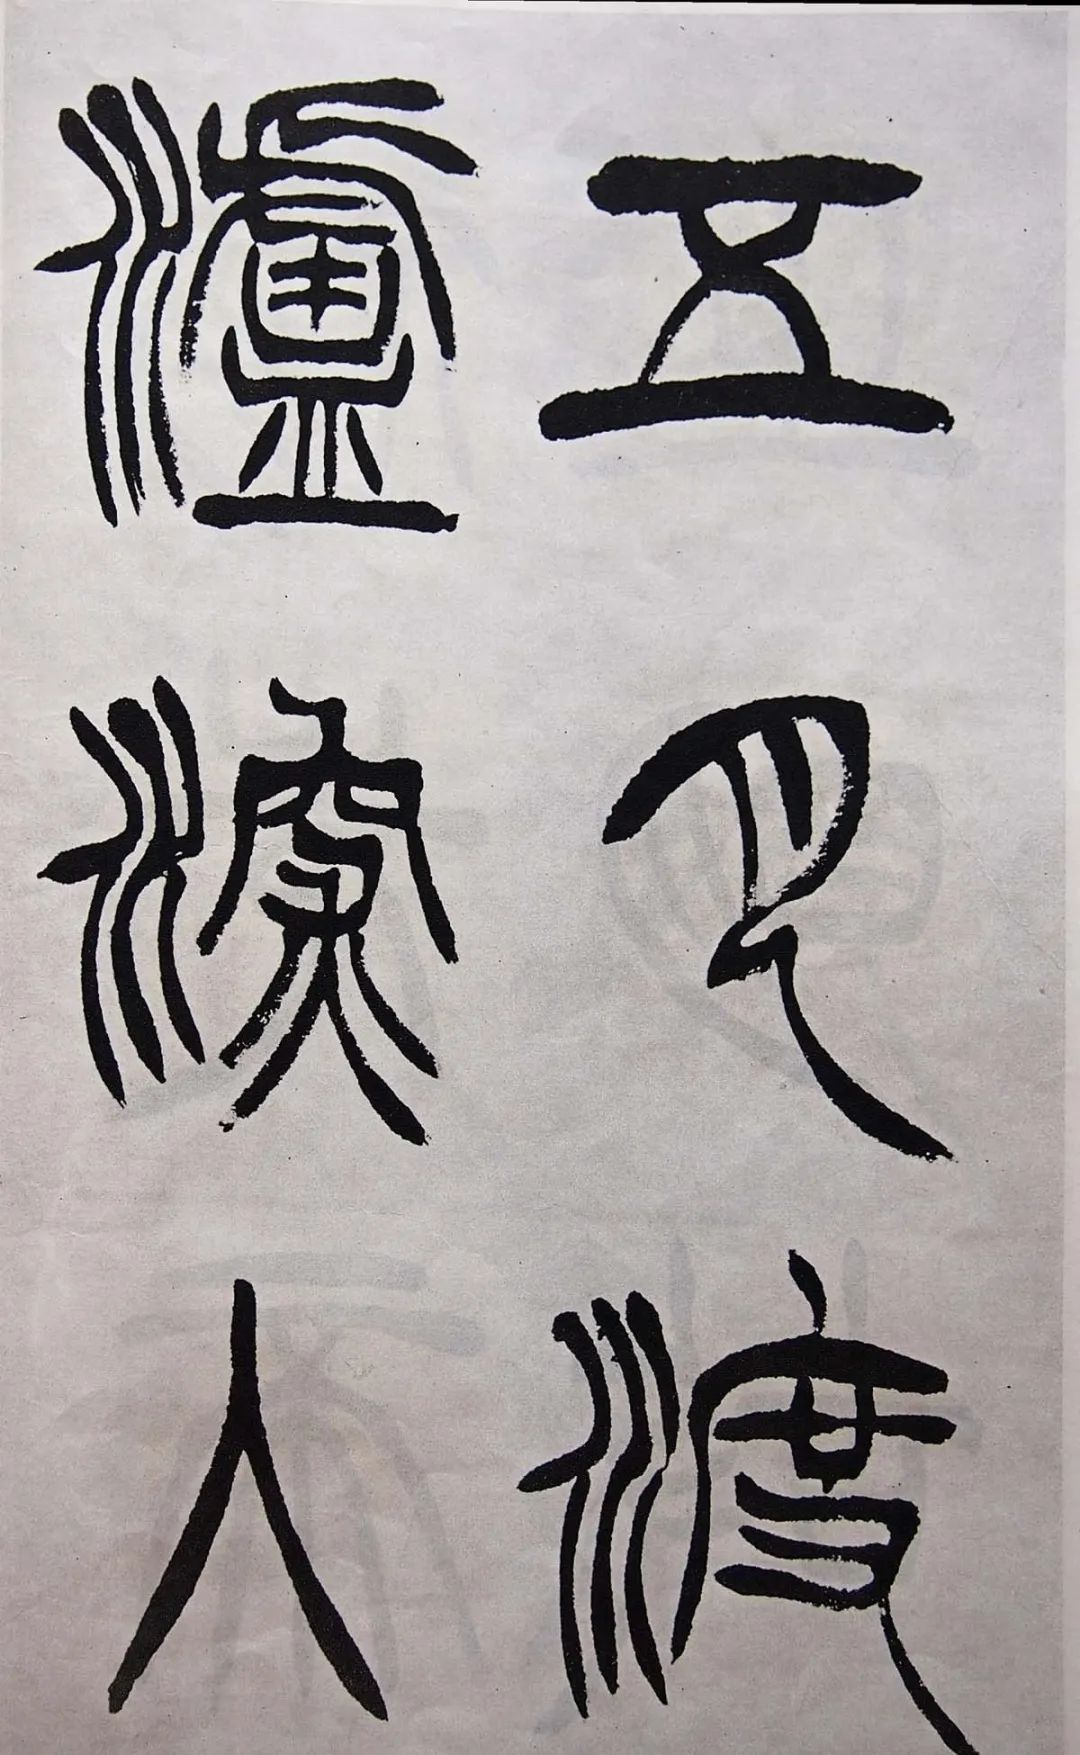 五月渡
瀘深入